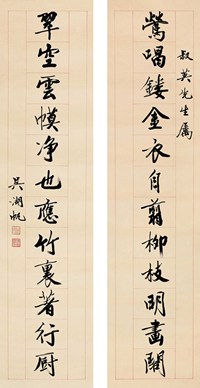 叔英先生属
鶯唱鏤金衣自翦柳枝明畫閣
翠空雲幌净也應竹裏著行厨
吴湖帆